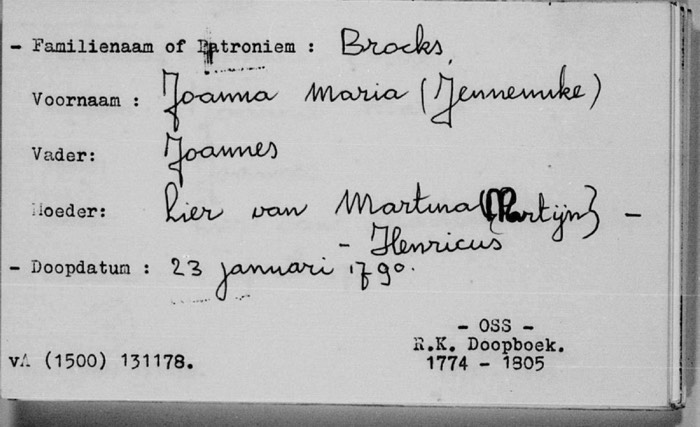 - Familienaam of Patroniem : Brocks,
Voornaam : Joanna Maria (Jennemike)
Vader: Joannes
Moeder: Lier van Martina (Martijn) -
- Henricus
- Doopdatum : 23 januari 1790.
- OSS -
R.K. Doopboek.
vA (1500) 131178. 1774 - 1805